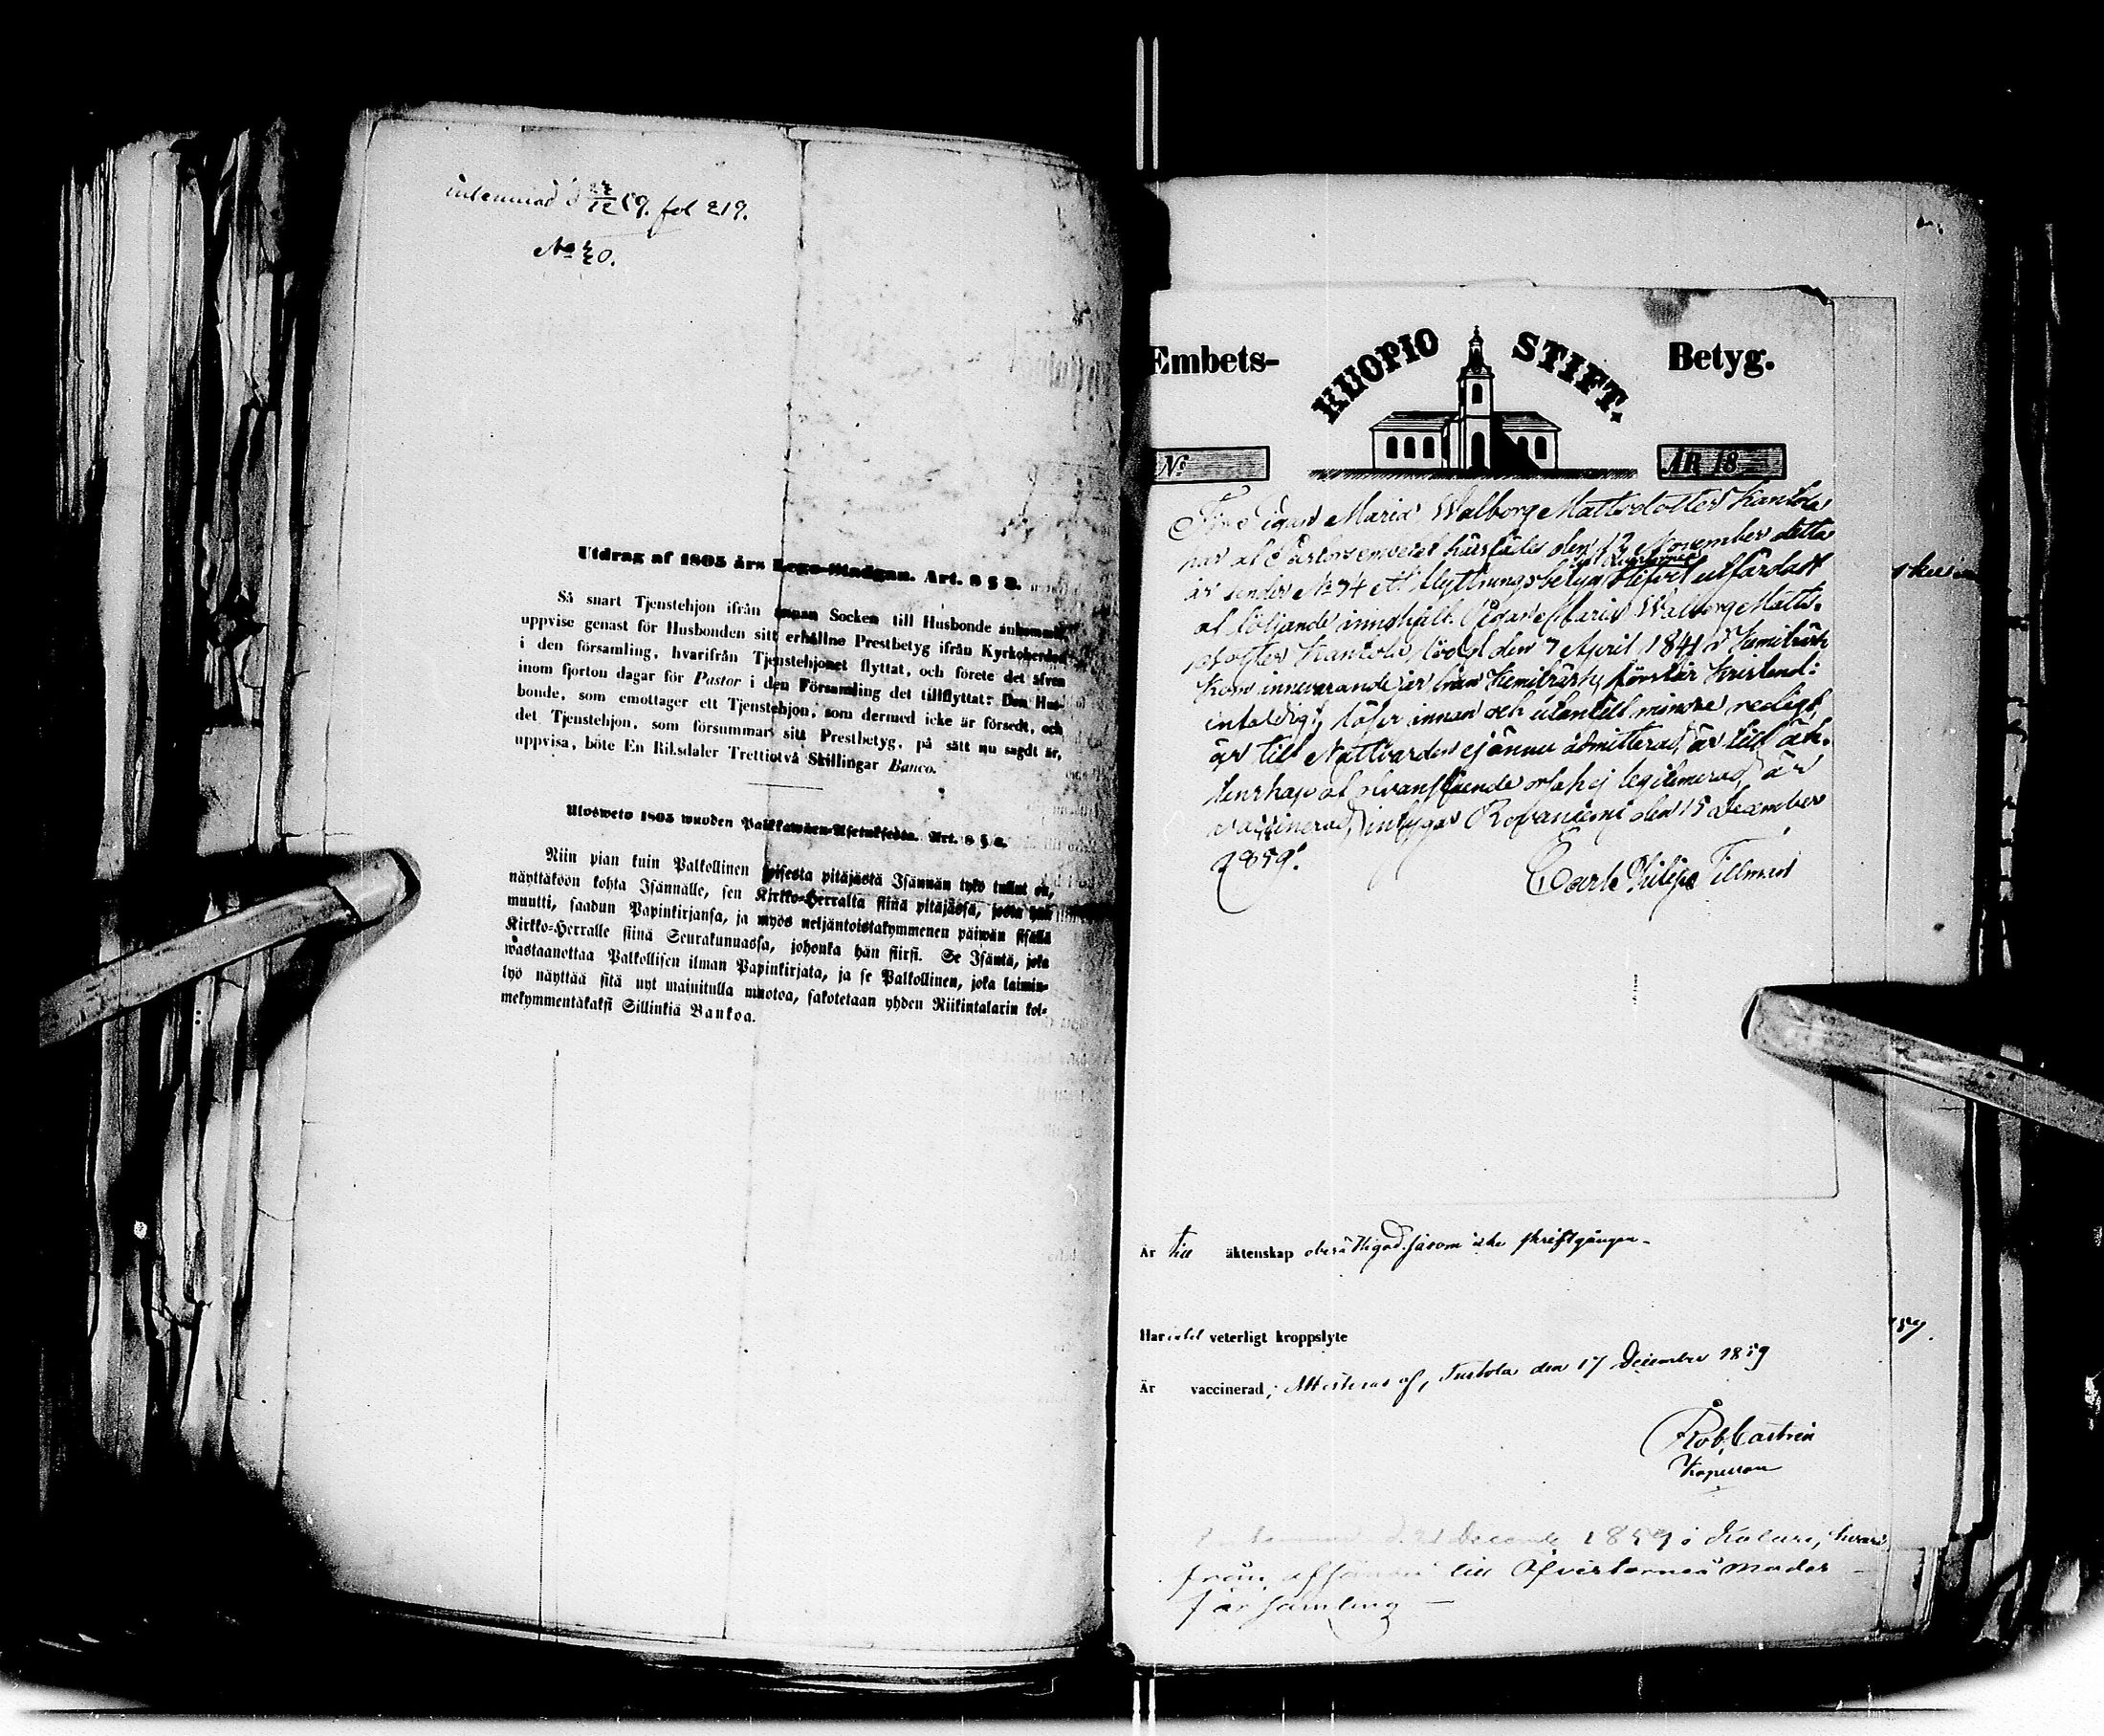 inlemnad d 22/12 59. fol 219.
No 20.
Utdrag af 1805 års Lego-Stadgan. Art. 8 § 2.
Så snart Tjenstehjon ifrån annan Socken till Husbonde ankommit,
uppvise genast för Husbonden sitt erhållne Prestbetyg ifrån Kyrkoherden
i den församling, hvarifrån Tjenstehjonet flyttat, och förete det äfven
inom fjorton dagar för Pastor i den Församling det tillflyttat: Den Hus-
bonde, som emottager ett Tjenstehjon, som dermed icke är försedt, och
det Tjenstehjon, som försummar sitt Prestbetyg, på sätt nu sagdt är,
uppvisa, böte En Riksdaler Trettiotvå Skillingar Banco.
Ulosweto 1805 wuoden Palkkawäen-Asetuksesta. Art. 8 § 2.
Niin pian kuin Palkollinen toisesta pitäjästä Isännän tykö tullut on,
näyttäköön kohta Isännälle, sen Kirkko-Herralta siinä pitäjässä, josta hän
muutti, saadun Papinkirjansa, ja myös neljäntoistakymmenen päiwän sisällä
Kirkko-Herralle siinä Seurakunnassa, johonka hän siirsi. Se Isäntä, joka
wastaanottaa Palkollisen ilman Papinkirjata, ja se Palkollinen, joka laimin-
lyö näyttää sitä nyt mainitulla muotoa, sakotetaan yhden Riikintalarin kol-
mekymmentäkaksi Sillinkiä Bankoa.
Embets- KUOPIO STIFT. Betyg.
No ÅR 18
Pigan Maria Walborg Mattsdotter Kantola
har af Pastorsembetet härstädes den 12 November detta
år under No 74 ett flyttningsbetyg till utfärdadt
af följande innehåll. Pigan Maria Walborg Matts-
dotter Kantola, född den 7 April 1841 i Kemiträsk
kom innevarande år från Kemiträsk, förstår kristend:
intaldigt, läser innan och utantill mindre redigt,
är till Nattvarden ej ännu admitterad, är till äk-
tenskap af ofvanstående orsak ej legitimerad, är
vaccinerad, intygar Rovaniemi den 15 December
1859.
Carl Philip Tillman
Är till äktenskap oberättigad såsom icke skriftgången.
Har intet veterligt kroppslyte
Är vaccinerad; Attesteras af, Turtola den 17 December 1859
Rob. Castrén
Kapellan
d. 21 December 1859 i Kolari, hvari
från till Öfvertorneå Moder
församling